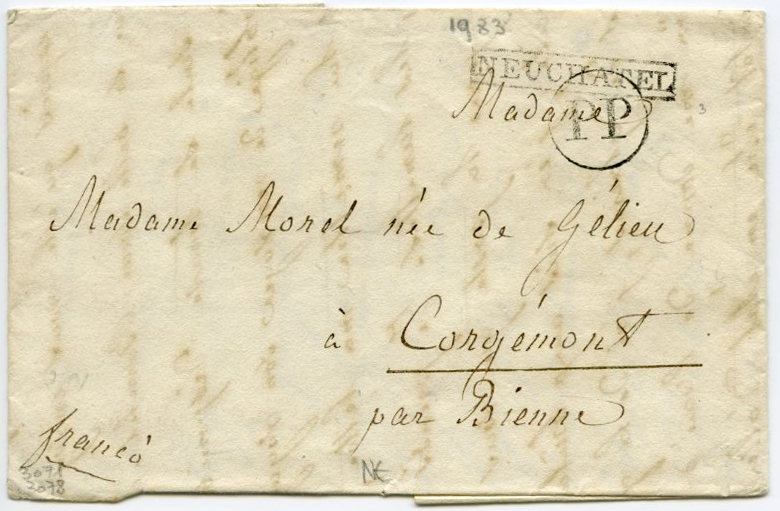 1983
NEUCHATEL
Madame
PP
3
Madame Morel née de Gélieu
à Corgémont
par Bienne
francò
3071
2078
NE